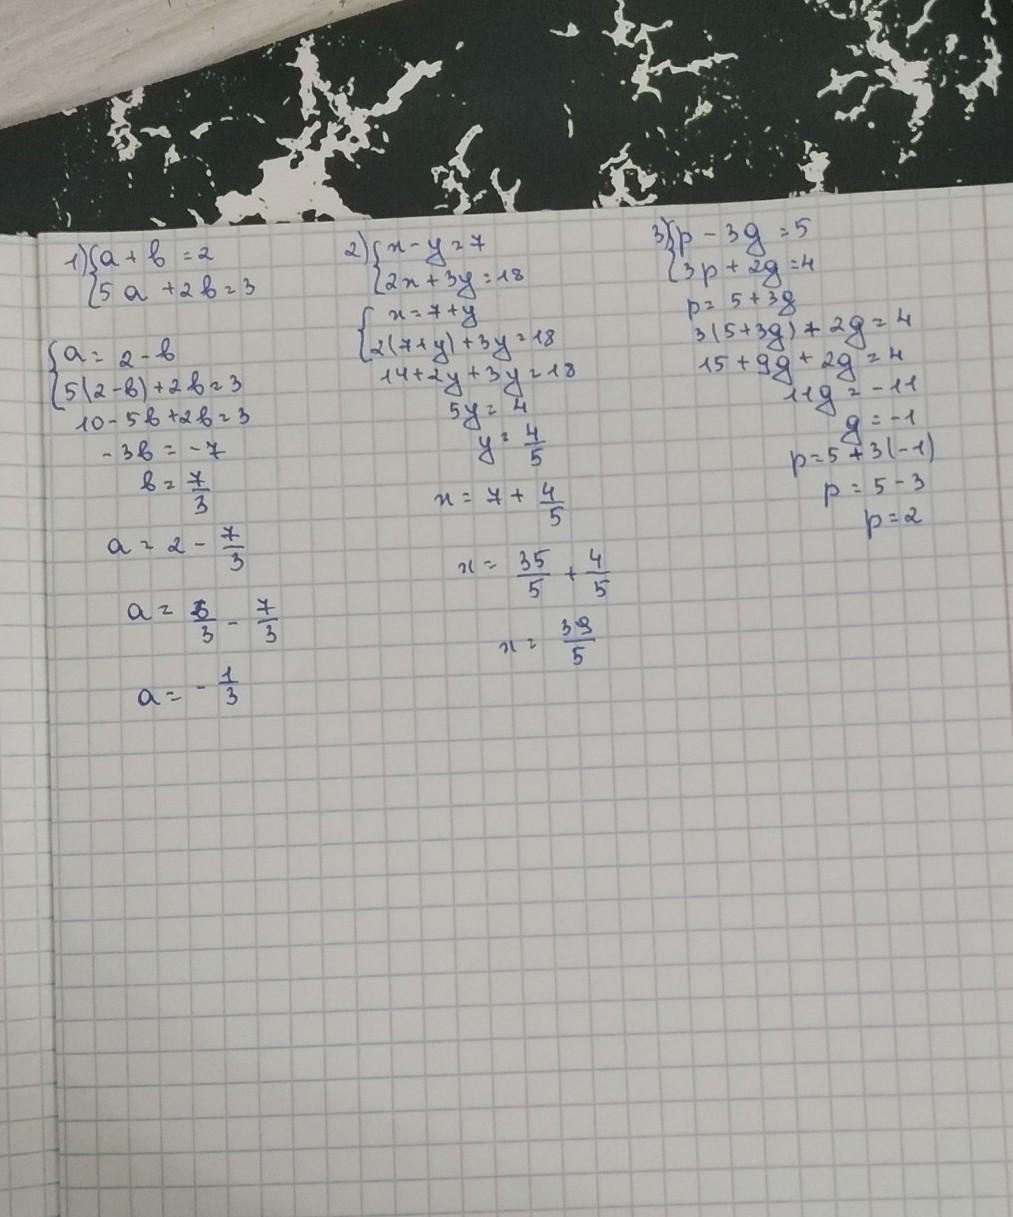 1) { a + b = 2
5a + 2b = 3
{ a = 2 - b
5(2-b) + 2b = 3
10 - 5b + 2b = 3
- 3b = - 7
b = 7/3
a = 2 - 7/3
a = 6/3 - 7/3
a = - 1/3
2) { x - y = 7
2x + 3y = 18
{ x = 7 + y
2(7+y) + 3y = 18
14 + 2y + 3y = 18
5y = 4
y = 4/5
x = 7 + 4/5
x = 35/5 + 4/5
x = 39/5
3) { p - 3g = 5
3p + 2g = 4
p = 5 + 3g
3(5+3g) + 2g = 4
15 + 9g + 2g = 4
11g = - 11
g = - 1
p = 5 + 3(-1)
p = 5 - 3
p = 2